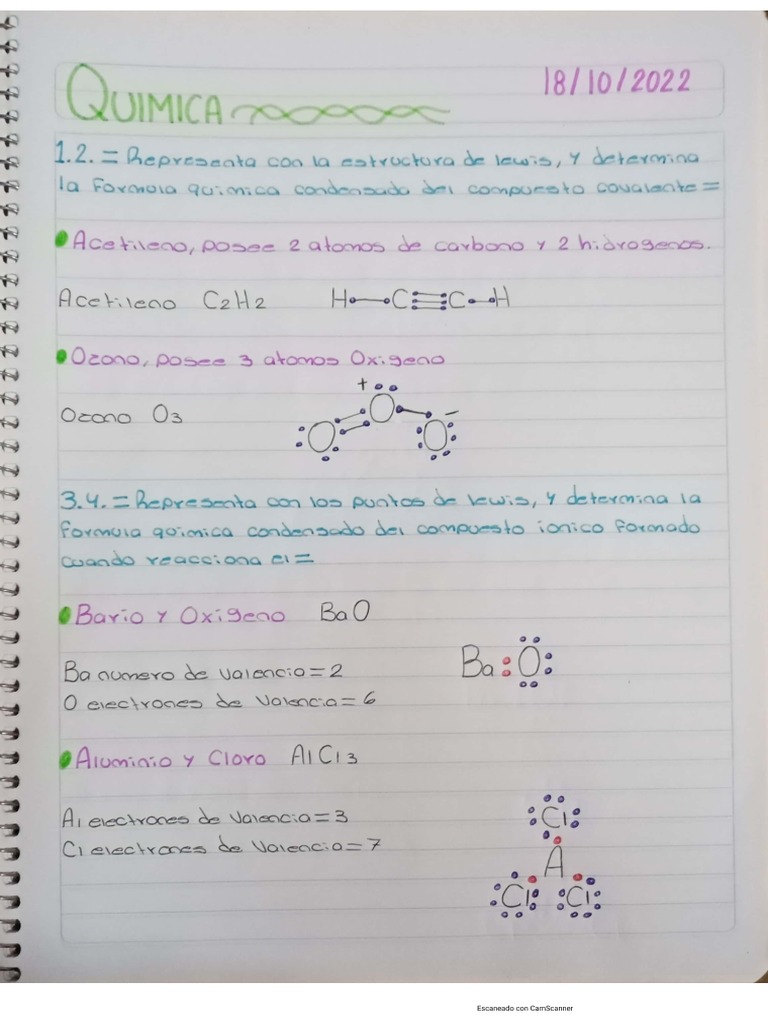 QUIMICA
18/10/2022
1.2.= Representa con la estructura de lewis, y determina
la formula quimica condensada del compuesto covalente=
Acetileno, posee 2 atomos de carbono y 2 hidrogenos.
Acetileno C2H2 H C C H
Ozono, posee 3 atomos Oxigeno
+
Ozono O3 O O O −
3.4.= Representa con los puntos de lewis, y determina la
formula quimica condensado del compuesto ionico formado
cuando reacciona el=
Bario y Oxigeno BaO
Ba numero de valencia=2 Ba:O
O electrones de valencia=6
Aluminio y Cloro AlCl3
Al electrones de valencia=3 Cl
Cl electrones de valencia=7 A
Cl Cl
Escaneado con CamScanner